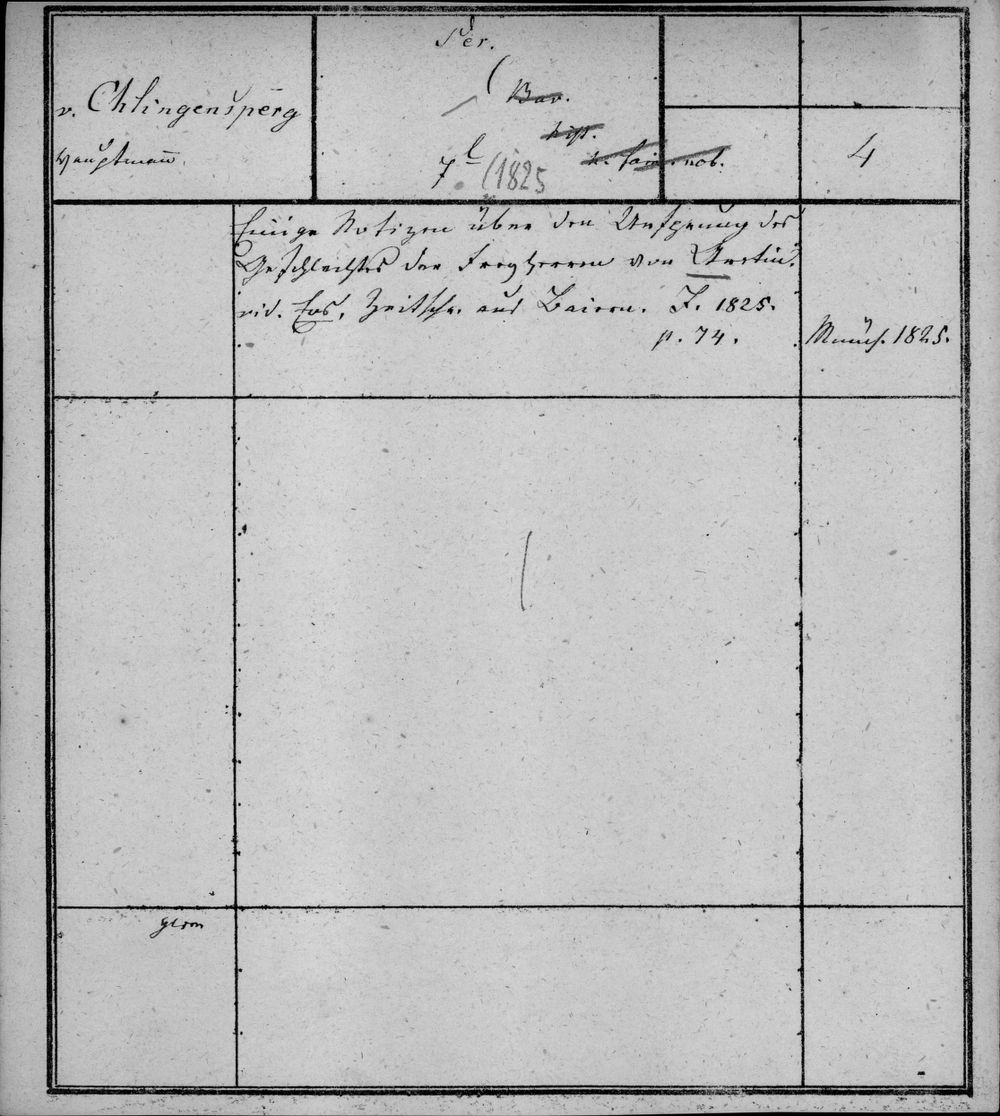 v. Chlingensperg
Hauptmann.
Per.
Bav.
hist.
h. fam. nob.
7 l (1825
4
Einige Notizen über den Ursprung des
Geschlechtes der Freyherren von Aretin.
vid. Eos, Zeitschr. aus Baiern. J. 1825.
p. 74.
Münch. 1825.